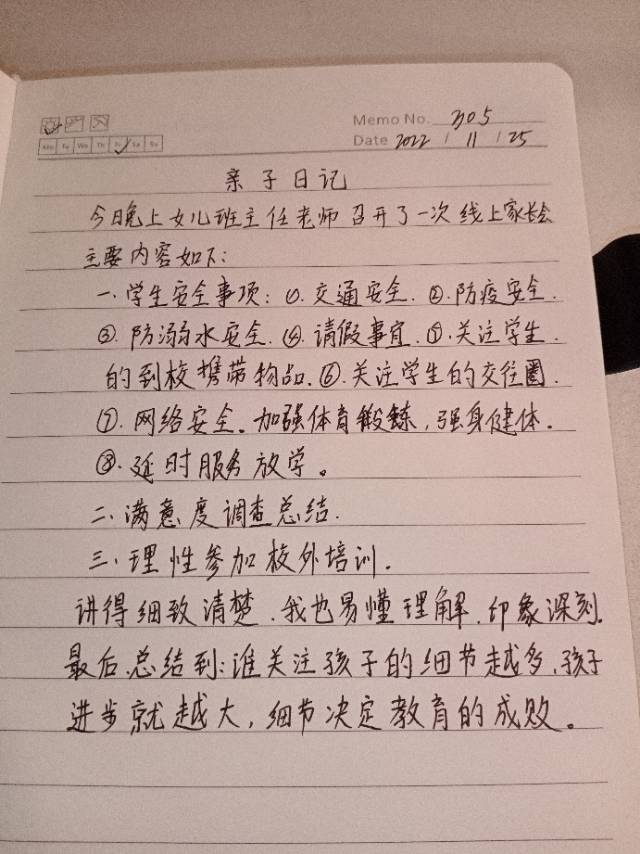 Memo No. 305
Mo Tu We Th Fr Sa Su
Date 2022 / 11 / 25
亲子日记
今日晚上女儿班主任老师召开了一次线上家长会
主要内容如下：
一、学生安全事项：①.交通安全.②.防疫安全.
③.防溺水安全.④.请假事宜.⑤.关注学生
的到校携带物品.⑥.关注学生的交往圈.
⑦.网络安全。加强体育锻鍊，强身健体.
⑧.延时服务放学。
二、满意度调查总结.
三、理性参加校外培训.
讲得细致清楚、我也易懂理解、印象深刻.
最后、总结到：谁关注孩子的细节越多、孩子
进步就越大，细节决定教育的成败。